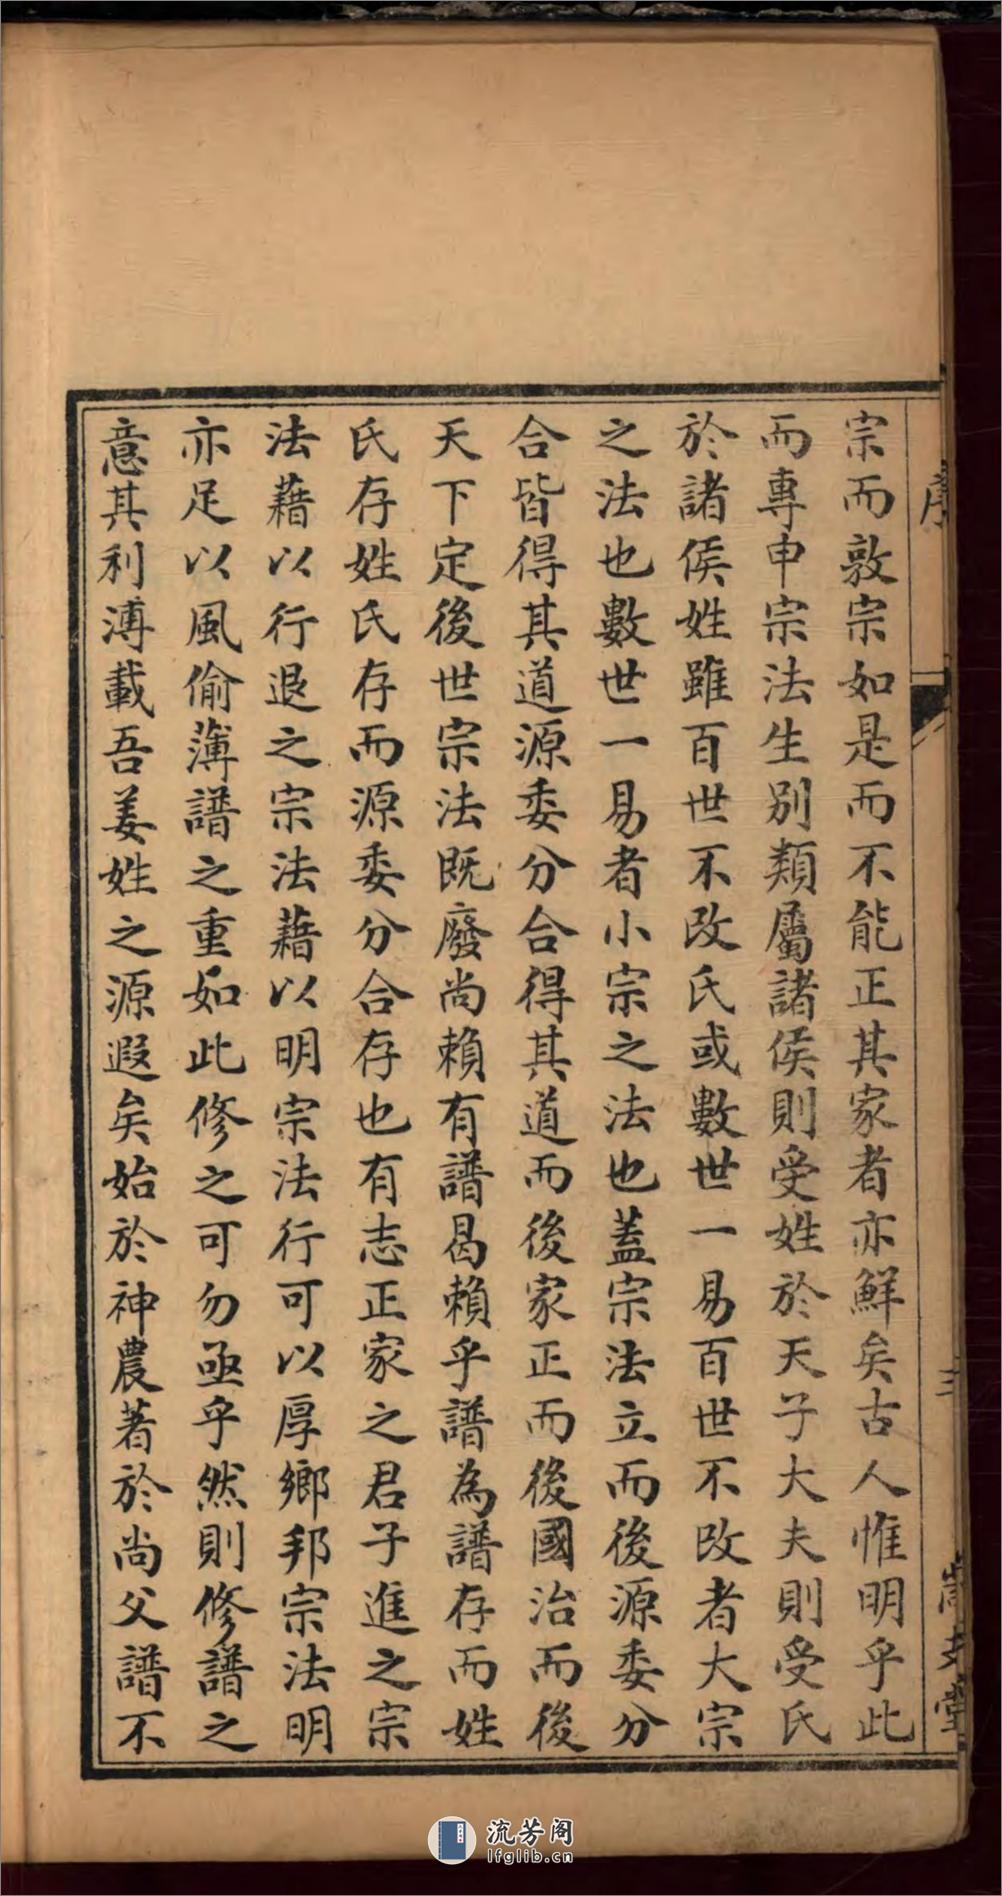 序
三
宗而敦宗如是而不能正其家者亦鮮矣古人惟明乎此
而專申宗法生別類屬諸侯則受姓於天子大夫則受氏
於諸侯姓雖百世不改氏或數世一易百世不改者大宗
之法也數世一易者小宗之法也蓋宗法立而後源委分
合皆得其道源委分合得其道而後家正而後國治而後
天下定後世宗法既廢尚賴有譜曷賴乎譜為譜存而姓
氏存姓氏存而源委分合存也有志正家之君子進之宗
法藉以行退之宗法藉以明宗法行可以厚鄉邦宗法明
亦足以風偷薄譜之重如此修之可勿亟乎然則修譜之
意其利溥載吾姜姓之源遐矣始於神農著於尚父譜不
流芳阁
lfglib.cn